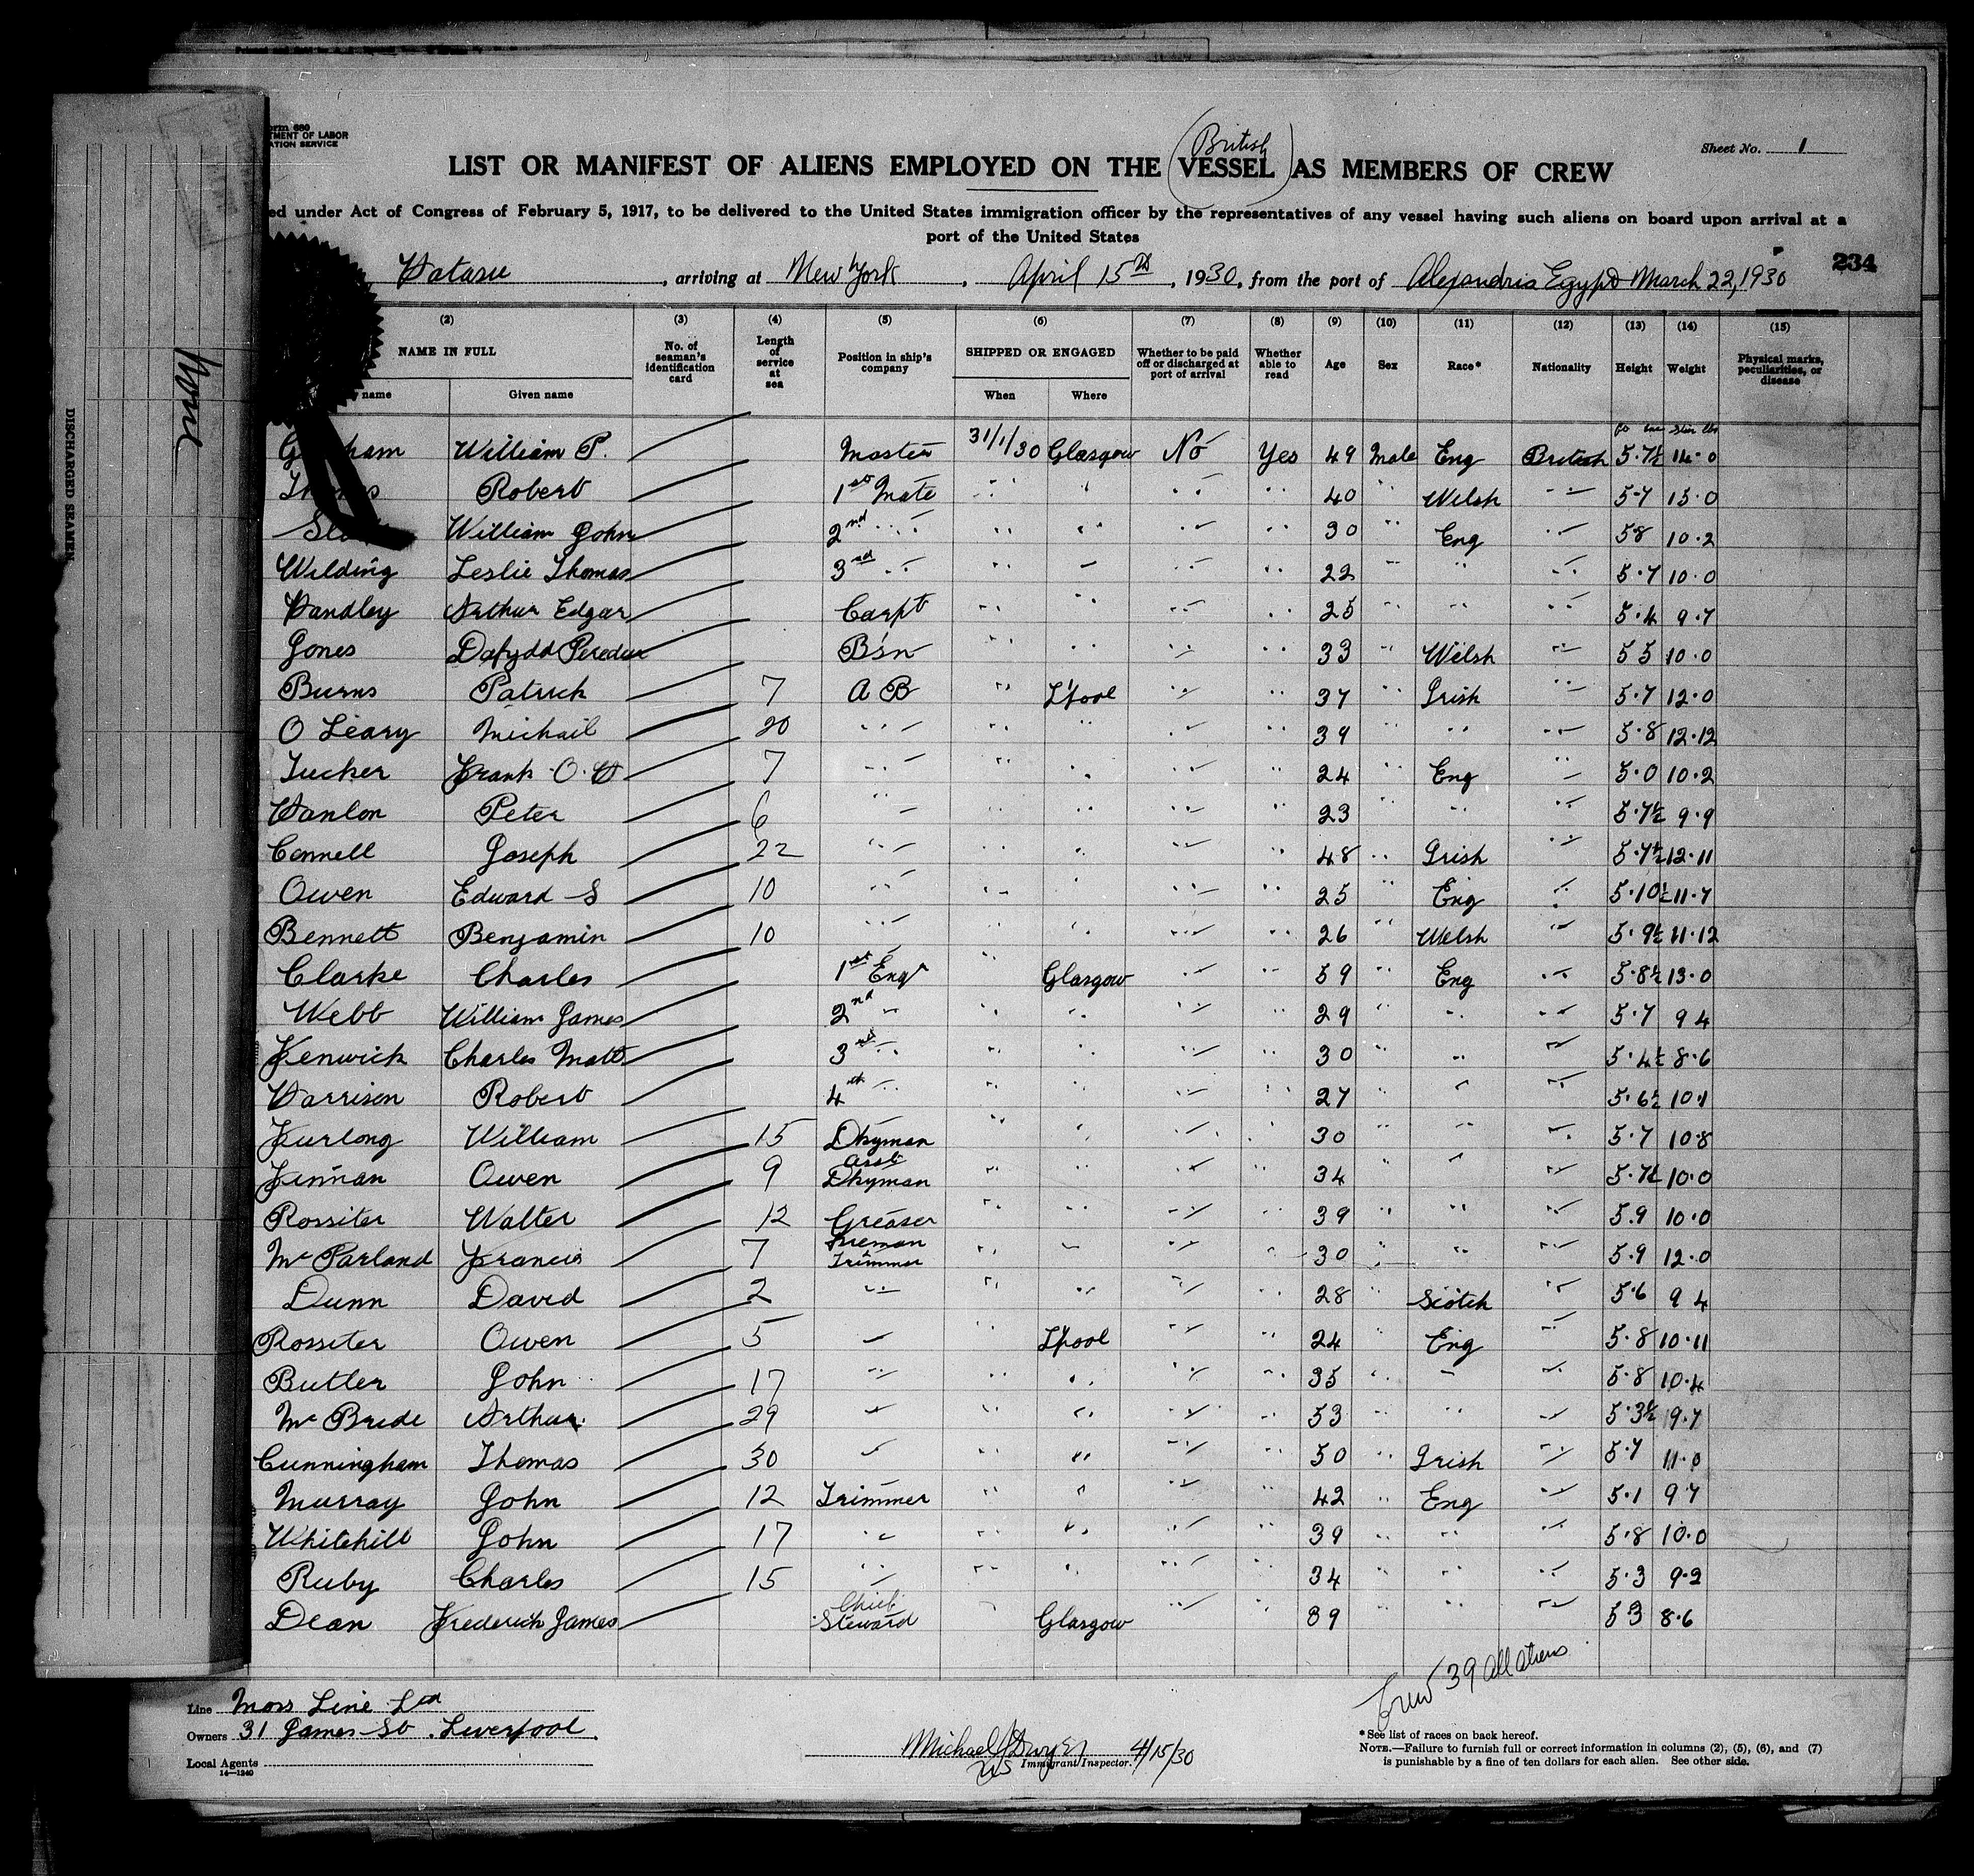 orm 680
TMENT OF LABOR
ATION SERVICE
Sheet No. 1
British
LIST OR MANIFEST OF ALIENS EMPLOYED ON THE VESSEL AS MEMBERS OF CREW
ed under Act of Congress of February 5, 1917, to be delivered to the United States immigration officer by the representatives of any vessel having such aliens on board upon arrival at a
port of the United States
234
Hatasu, arriving at New York, April 15th, 1930, from the port of Alexandria Egypt March 22, 1930
None
DISCHARGED SEAMEN
(2) (3) (4) (5) (6) (7) (8) (9) (10) (11) (12) (13) (14) (15)
NAME IN FULL No. of seaman's identification card Length of service at sea Position in ship's company SHIPPED OR ENGAGED Whether to be paid off or discharged at port of arrival Whether able to read Age Sex Race* Nationality Height Weight Physical marks, peculiarities, or disease
name Given name When Where
ham William P. Master 31/1/30 Glasgow No Yes 49 Male Eng British 5·7½ 11·0
Robert 1st Mate " " " " 40 " Welsh " 5·7 13·0
William John 2nd " " " " " 30 " Eng " 5 8 10·2
Wilding Leslie Thomas 3rd " " " " " 22 " " " 5·7 10·0
Handley Arthur Edgar Carpt " " " " 25 " " " 5·4 9·7
Jones Dafydd Peredur B'sn " " " " 33 " Welsh " 5 5 10·0
Burns Patrick 7 A B " L'pool " " 37 " Irish " 5·7 12·0
O Leary Michail 20 " " " " " 39 " " " 5·8 12·12
Tucker Frank O. H 7 " " " " " 24 " Eng " 5·0 10·2
Hanlon Peter 6 " " " " " 23 " " " 5·7½ 9·9
Connell Joseph 22 " " " " " 48 " Irish " 5·7½ 12·11
Owen Edward S 10 " " " " " 25 " Eng " 5·10½ 11·7
Bennett Benjamin 10 " " " " " 26 " Welsh " 5·9½ 11·12
Clarke Charles 1st Engr " Glasgow " " 59 " Eng " 5·8½ 13·0
Webb William James 2nd " " " " " 29 " " " 5·7 9 4
Fenwick Charles Matt 3rd " " " " " 30 " " " 5·4½ 8·6
Harrison Robert 4th " " " " " 27 " " " 5·6½ 10·1
Furlong William 15 Dkyman " " " " 30 " " " 5·7 10·8
Finnan Owen 9 Asst Dkyman " " " " 34 " " " 5·7½ 10·0
Rossiter Walter 12 Greaser " " " " 39 " " " 5.9 10·0
Mc Parland Francis 7 Fireman Trimmer " " " " 30 " " " 5·9 12·0
Dunn David 2 " " " " " 28 " Scotch " 5·6 9 4
Rossiter Owen 5 " " L'pool " " 24 " Eng " 5·8 10·11
Butler John 17 " " " " " 35 " " " 5·8 10·4
Mc Bride Arthur 29 " " " " " 53 " " " 5·3½ 9·7
Cunningham Thomas 30 " " " " " 50 " Irish " 5·7 11·0
Murray John 12 Trimmer " " " " 42 " Eng " 5·1 9 7
Whitehill John 17 " " " " " 39 " " " 5·8 10·0
Ruby Charles 15 " " " " " 34 " " " 5·3 9·2
Dean Frederick James Chief Steward " Glasgow " " 39 " " " 5 3 8·6
Crew 39 all aliens
Line Moss Line Ltd
Owners 31 James St. Liverpool.
Local Agents
14—1240
Michael J Dwyer 4/15/30
US Immigrant Inspector.
*See list of races on back hereof.
NOTE.—Failure to furnish full or correct information in columns (2), (5), (6), and (7)
is punishable by a fine of ten dollars for each alien. See other side.